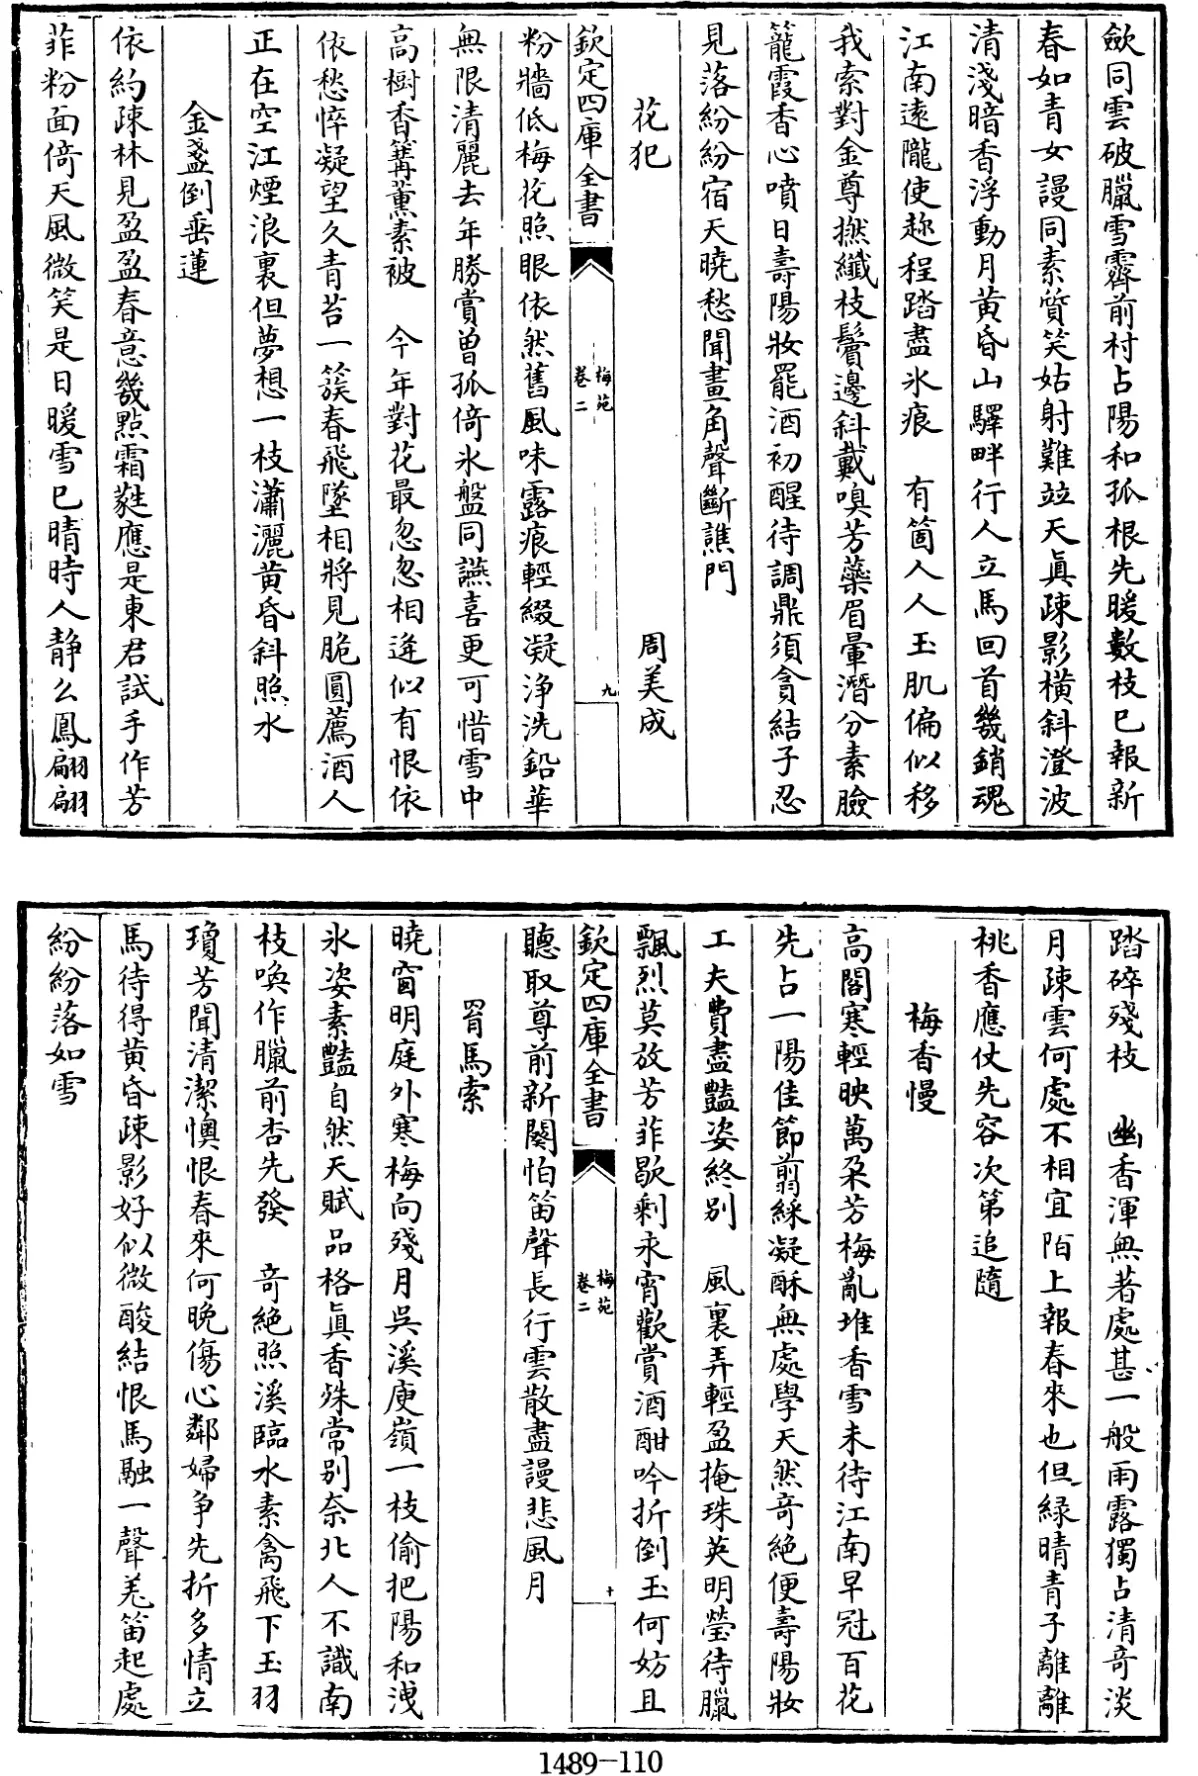 斂同雲破臘雪霽前村占陽和孤根先暖數枝已報新
春如青女謾同素質笑姑射難竝天真疎影橫斜澄波
清淺暗香浮動月黃昏山驛畔行人立馬回首幾銷魂
江南遠隴使趂程踏盡氷痕　有箇人人玉肌偏似移
我索對金尊撚纖枝鬢邊斜戴嗅芳蘂眉暈潛分素臉
籠霞香心噴日壽陽妝罷酒初醒待調鼎須貪結子忍
見落紛紛宿天曉愁聞畫角聲斷譙門
花犯　周美成
欽定四庫全書　梅苑　卷二　九
粉牆低梅花照眼依然舊風味露痕輕綴凝浄洗鉛華
無限清麗去年勝賞曾孤倚氷盤同讌喜更可惜雪中
高樹香篝薰素被　今年對花最怱怱相逢似有恨依
依愁悴凝望久青苔一簇春飛墜相將見脆圓薦酒人
正在空江煙浪裏但夢想一枝瀟灑黃昏斜照水
金盞倒垂蓮
依約疎林見盈盈春意幾點霜蕤應是東君試手作芳
菲粉面倚天風微笑是日暖雪已晴時人靜么鳳翩翩
踏碎殘枝　幽香渾無著處甚一般雨露獨占清奇淡
月疎雲何處不相宜陌上報春來也但綠晴青子離離
桃杏應仗先容次第追隨
梅香慢
高閣寒輕映萬朶芳梅亂堆香雪未待江南早冠百花
先占一陽佳節翦綵凝酥無處學天然奇絕便壽陽妝
工夫費盡豔姿終別　風裏弄輕盈掩珠英明瑩待臘
飄烈莫放芳菲歇剩永宵歡賞酒酣吟折倒玉何妨且
欽定四庫全書　梅苑　卷二　十
聽取尊前新闋怕笛聲長行雲散盡謾悲風月
罥馬索
曉窗明庭外寒梅向殘月吳溪庾嶺一枝偷把陽和洩
氷姿素豔自然天賦品格真香殊常別奈北人不識南
枝喚作臘前杏先發　奇絕照溪臨水素禽飛下玉羽
瓊芳聞清潔懊恨春來何晚傷心鄰婦爭先折多情立
馬待得黃昏疎影好似微酸結恨馬融一聲羌笛起處
紛紛落如雪
1489-110